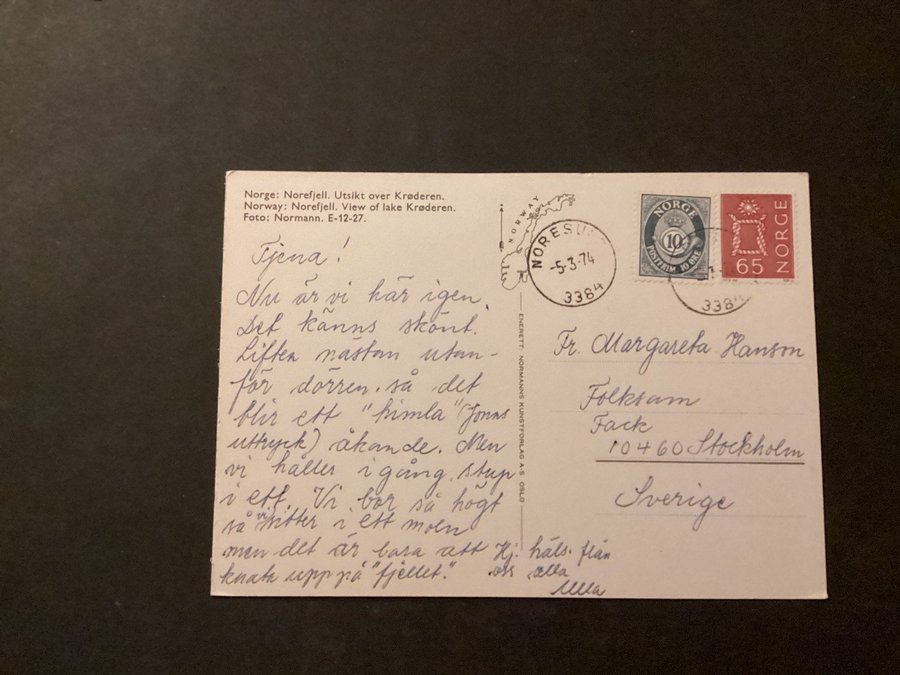 Norge: Norefjell. Utsikt over Krøderen.
Norway: Norefjell. View of lake Krøderen.
Foto: Normann. E-12-27.
Tjena!
Nu är vi här igen.
Det känns skönt.
Liften nästan utan-
för dörren, så det
blir ett "himla" (Jonns
uttryck) åkande. Men
vi håller i gång stup
i ett. Vi bor så högt
så vi sitter i ett moln
men det är bara att
knata upp på "fjellet."
Hj. häls. från
oss alla
Ulla
NORWAY
NORESU
-5.3.74
3384
NORGE
10
POSTFRIM. 10 ØRE
65
NORGE
338
ENERETT NORMANNS KUNSTFORLAG A-S OSLO
Fr. Margareta Hanson
Folksam
Fack
10460 Stockholm
Sverige